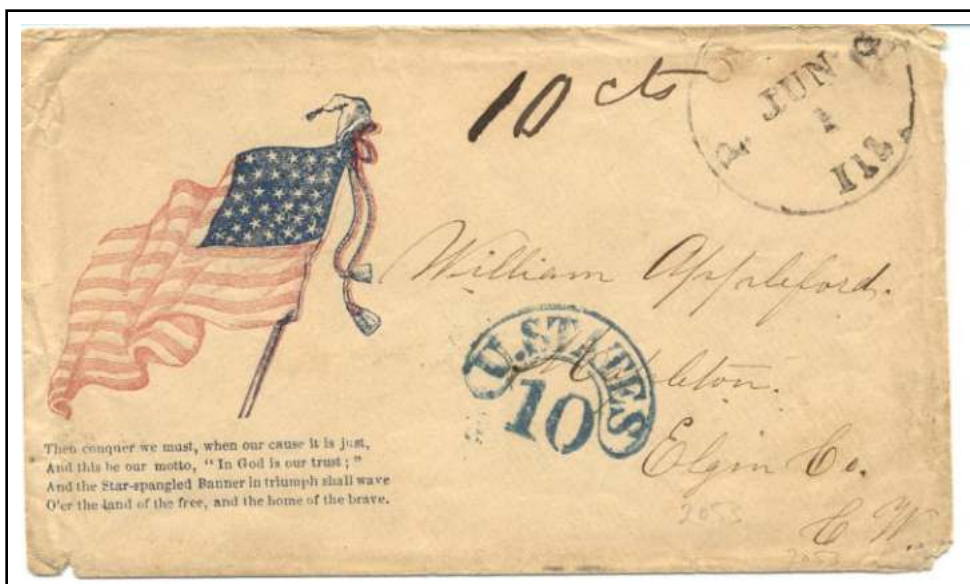 10 cts
JUN
1
Ills.
William Appleford.
U. STATES
10
Mapleton.
Elgin Co.
C W.
Then conquer we must, when our cause it is just,
And this be our motto, "In God is our trust;"
And the Star-spangled Banner in triumph shall wave
O'er the land of the free, and the home of the brave.
2053
2053